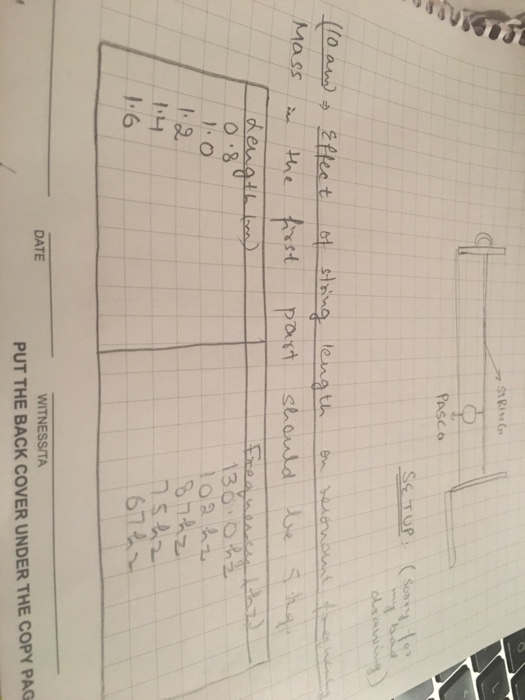 STRING
Pasco
SETUP: (sorry for
my bad
drawing)
(10 am) → Effect of string length on resonant frequency
Mass in the first part should be 5 kg.
Length (m) Frequency (hz)
0.8 130.0hz
1.0 102 hz
1.2 87hz
1.4 75hz
1.6 67hz
DATE WITNESS/TA
PUT THE BACK COVER UNDER THE COPY PAG